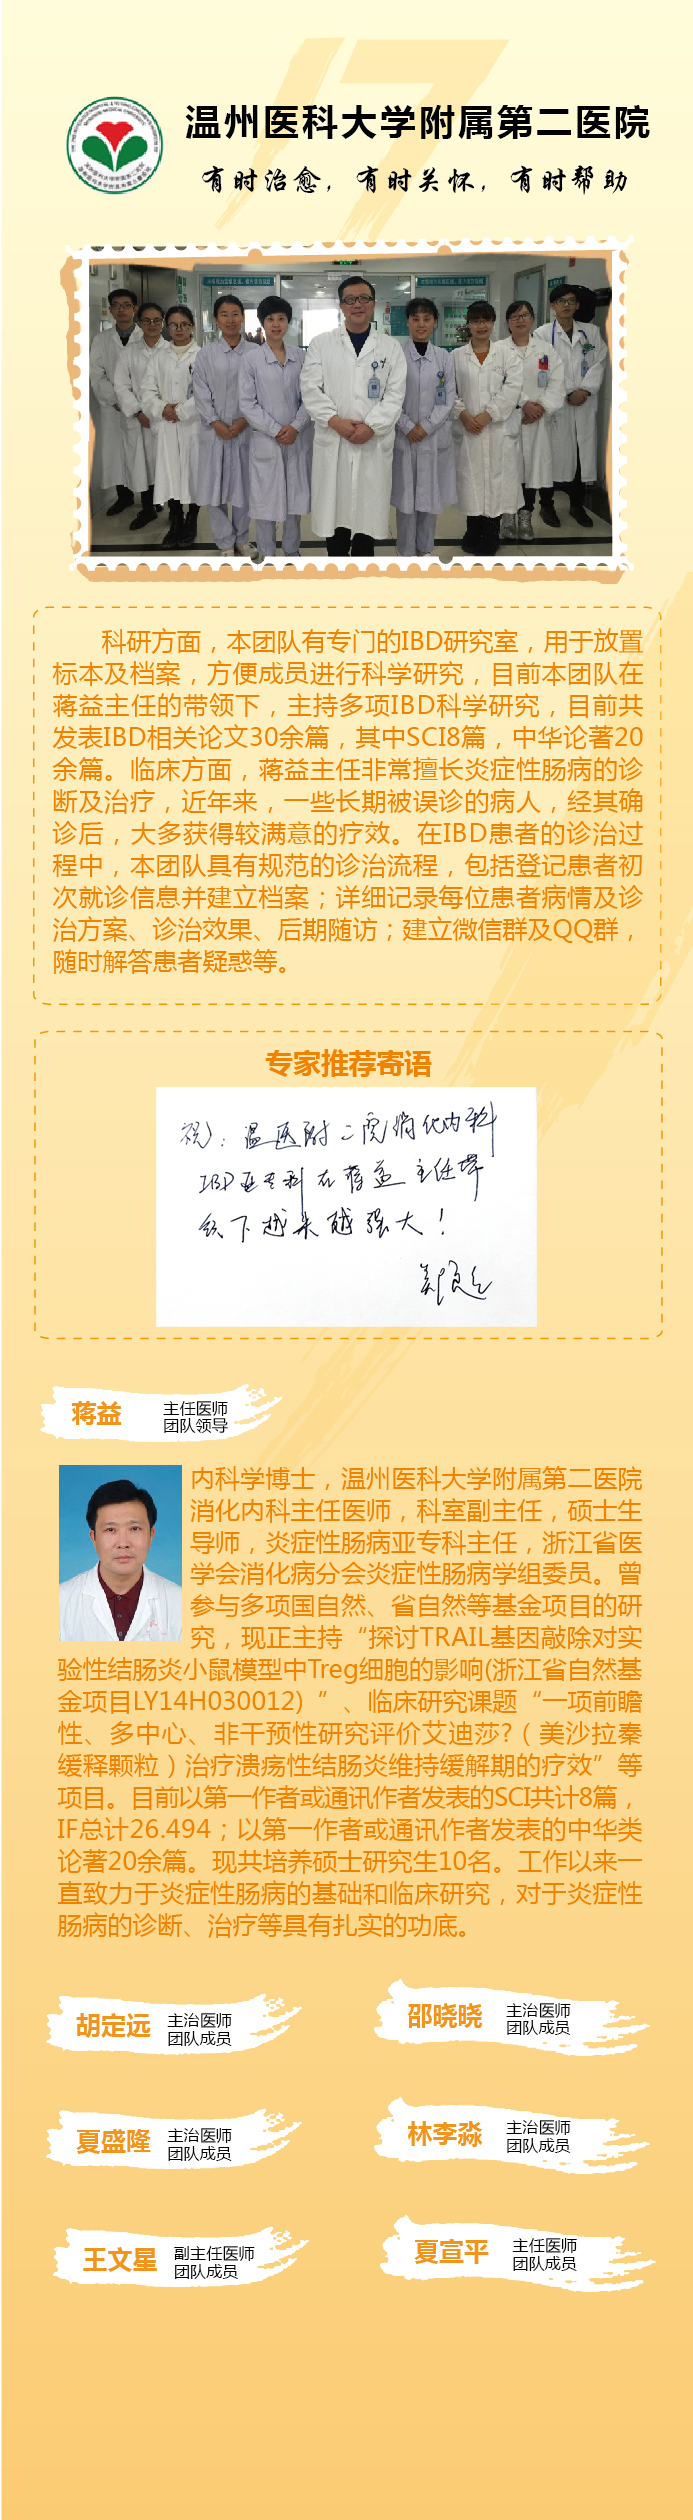 17
温州医科大学附属第二医院
有时治愈，有时关怀，有时帮助
科研方面，本团队有专门的IBD研究室，用于放置
标本及档案，方便成员进行科学研究，目前本团队在
蒋益主任的带领下，主持多项IBD科学研究，目前共
发表IBD相关论文30余篇，其中SCI8篇，中华论著20
余篇。临床方面，蒋益主任非常擅长炎症性肠病的诊
断及治疗，近年来，一些长期被误诊的病人，经其确
诊后，大多获得较满意的疗效。在IBD患者的诊治过
程中，本团队具有规范的诊治流程，包括登记患者初
次就诊信息并建立档案；详细记录每位患者病情及诊
治方案、诊治效果、后期随访；建立微信群及QQ群，
随时解答患者疑惑等。
专家推荐寄语
祝：温医附二院消化内科
IBD亚专科在蒋益主任带
领下越来越强大！
蒋益
主任医师
团队领导
内科学博士，温州医科大学附属第二医院
消化内科主任医师，科室副主任，硕士生
导师，炎症性肠病亚专科主任，浙江省医
学会消化病分会炎症性肠病学组委员。曾
参与多项国自然、省自然等基金项目的研
究，现正主持“探讨TRAIL基因敲除对实
验性结肠炎小鼠模型中Treg细胞的影响(浙江省自然基
金项目LY14H030012) ”、临床研究课题“一项前瞻
性、多中心、非干预性研究评价艾迪莎?（美沙拉秦
缓释颗粒）治疗溃疡性结肠炎维持缓解期的疗效”等
项目。目前以第一作者或通讯作者发表的SCI共计8篇，
IF总计26.494；以第一作者或通讯作者发表的中华类
论著20余篇。现共培养硕士研究生10名。工作以来一
直致力于炎症性肠病的基础和临床研究，对于炎症性
肠病的诊断、治疗等具有扎实的功底。
胡定远
主治医师
团队成员
邵晓晓
主治医师
团队成员
夏盛隆
主治医师
团队成员
林李淼
主治医师
团队成员
王文星
副主任医师
团队成员
夏宣平
主任医师
团队成员